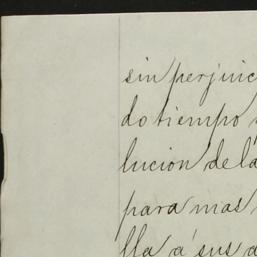 sin perjuic
do tiempo
lucion de la
para mas
lla a sus a